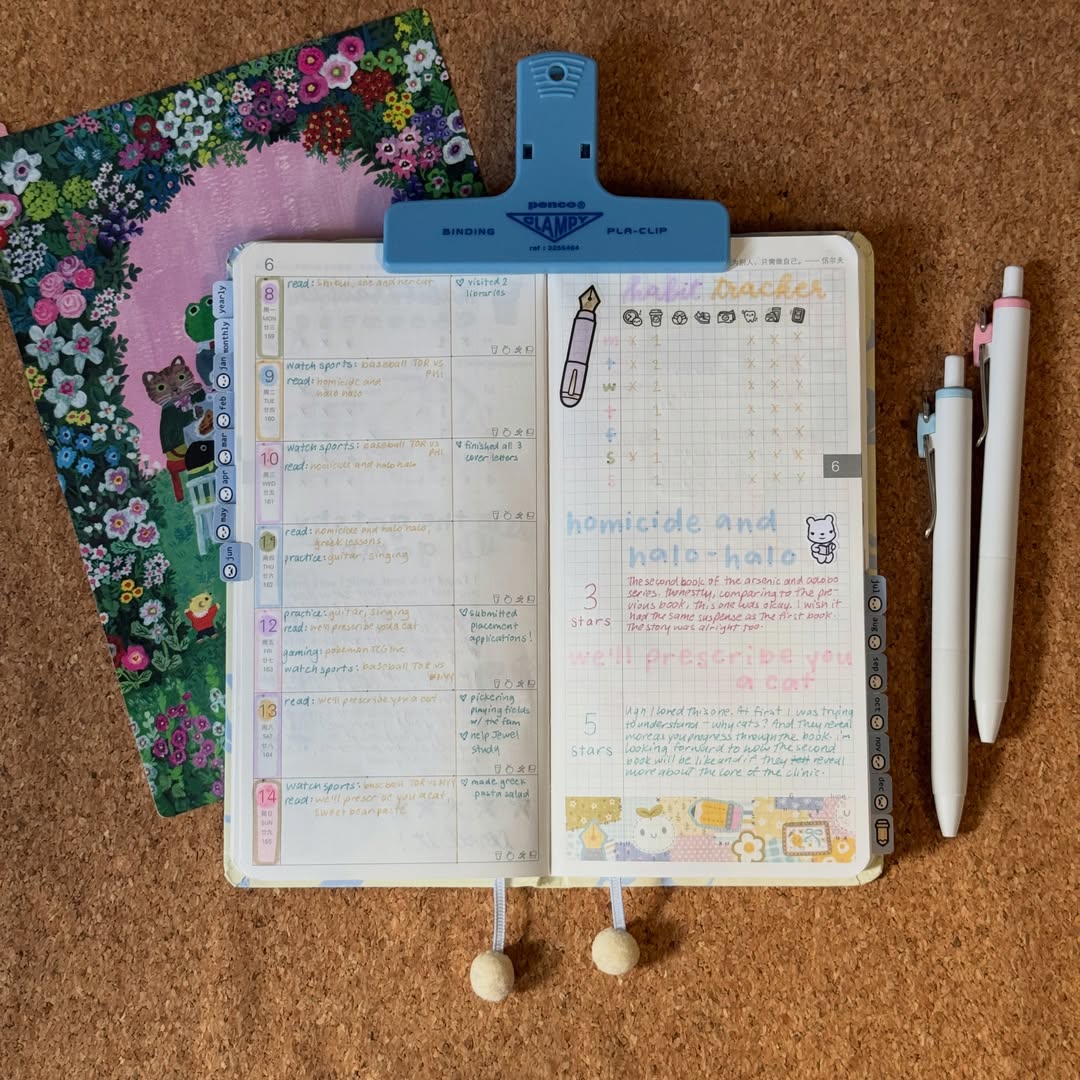 penco®
CLAMPY
BINDING
PLA-CLIP
ref : 3255464
6
yearly
monthly
jan
feb
mar
apr
may
jun
8
周一
MON
廿三
159
read: shibui, she and her cat
♡ visited 2
libraries
9
周二
TUE
廿四
160
watch sports: baseball TOR vs
PHI
read: homicide and
halo halo
10
周三
WED
廿五
161
watch sports: baseball TOR vs
PHI
read: homicide and halo halo
♡ finished all 3
cover letters
11
周四
THU
廿六
162
read: homicide and halo halo,
greek lessons,
practice: guitar, singing
12
周五
FRI
廿七
163
practice: guitar, singing
read: we'll prescribe you a cat
gaming: pokemon TCG live
watch sports: baseball TOR vs
♡ submitted
placement
applications!
13
周六
SAT
廿八
164
read: we'll prescribe you a cat
♡ pickering
playing fields
w/ the fam
♡ help Jewel
study
14
周日
SUN
廿九
165
watch sports: baseball TOR vs
read: we'll prescribe you a cat,
sweet bean paste
♡ made greek
pasta salad
别人，只需做自己。—— 伍尔夫
habit tracker
m x 1 x x x
t x 2 x x x
w x 1 x x x
t 1 x x x
f 1 x x x
s x 1 x x x
s x x x
6
homicide and
halo-halo
3
stars
The second book of the arsenic and adobo
series. Honestly, comparing to the pre-
vious book, this one was okay. I wish it
had the same suspense as the first book.
The story was alright too.
we'll prescribe you
a cat
5
stars
Ugh I loved this one. At first I was trying
to understand - why cats? And they reveal
more as you progress through the book. i'm
looking forward to how the second
book will be like and if they reveal
more about the lore of the clinic.
jul
aug
sep
oct
nov
dec